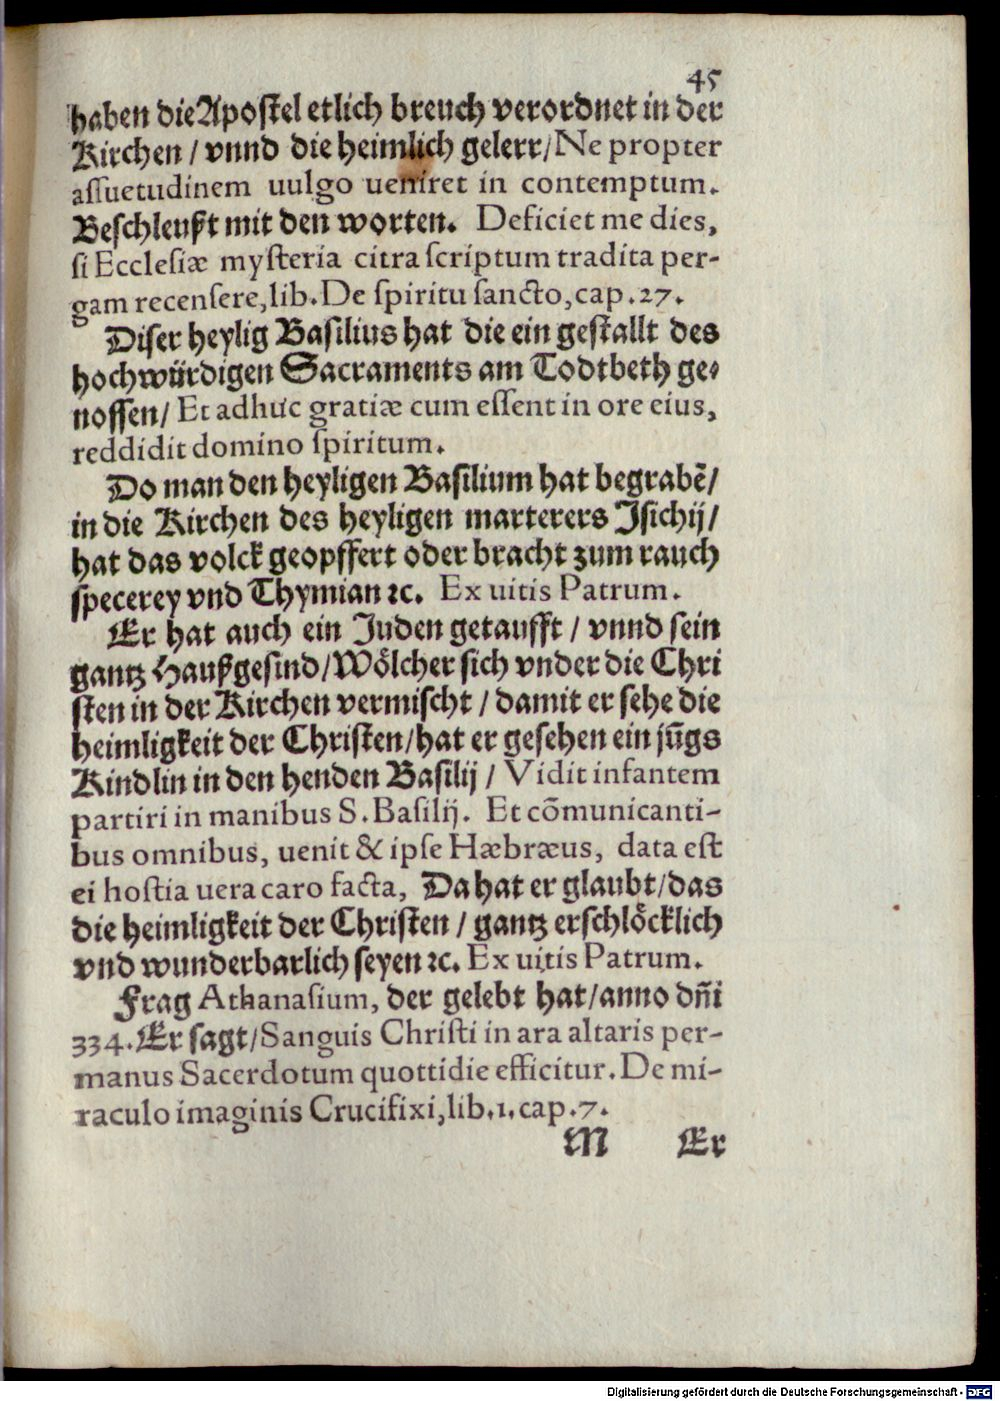 45
haben die Apostel etlich breuch verordnet in der
Kirchen / vnnd die heimlich gelerr / Ne propter
assuetudinem uulgo ueniret in contemptum.
Beschleußt mit den worten. Deficiet me dies,
si Ecclesiæ mysteria citra scriptum tradita per-
gam recensere, lib. De spiritu sancto, cap. 27.
Diser heylig Basilius hat die ein gestallt des
hochwürdigen Sacraments am Todtbeth ge-
nossen / Et adhuc gratiæ cum essent in ore eius,
reddidit domino spiritum.
Do man den heyligen Basilium hat begrabẽ /
in die Kirchen des heyligen marterers Jsichij /
hat das volck geopffert oder bracht zum rauch
specerey vnd Thymian ꝛc. Ex uitis Patrum.
Er hat auch ein Juden getaufft / vnnd sein
gantz Haußgesind / Wölcher sich vnder die Chri
sten in der Kirchen vermischt / damit er sehe die
heimligkeit der Christen / hat er gesehen ein jũgs
Kindlin in den henden Basilij / Vidit infantem
partiri in manibus S. Basilij. Et cõmunicanti-
bus omnibus, uenit & ipse Hæbræus, data est
ei hostia uera caro facta, Da hat er glaubt / das
die heimligkeit der Christen / gantz erschlöcklich
vnd wunderbarlich seyen ꝛc. Ex uitis Patrum.
Frag Athanasium, der gelebt hat / anno dñi
334. Er sagt / Sanguis Christi in ara altaris per-
manus Sacerdotum quottidie efficitur. De mi-
raculo imaginis Crucifixi, lib. 1. cap. 7.
M Er
Digitalisierung gefördert durch die Deutsche Forschungsgemeinschaft - DFG